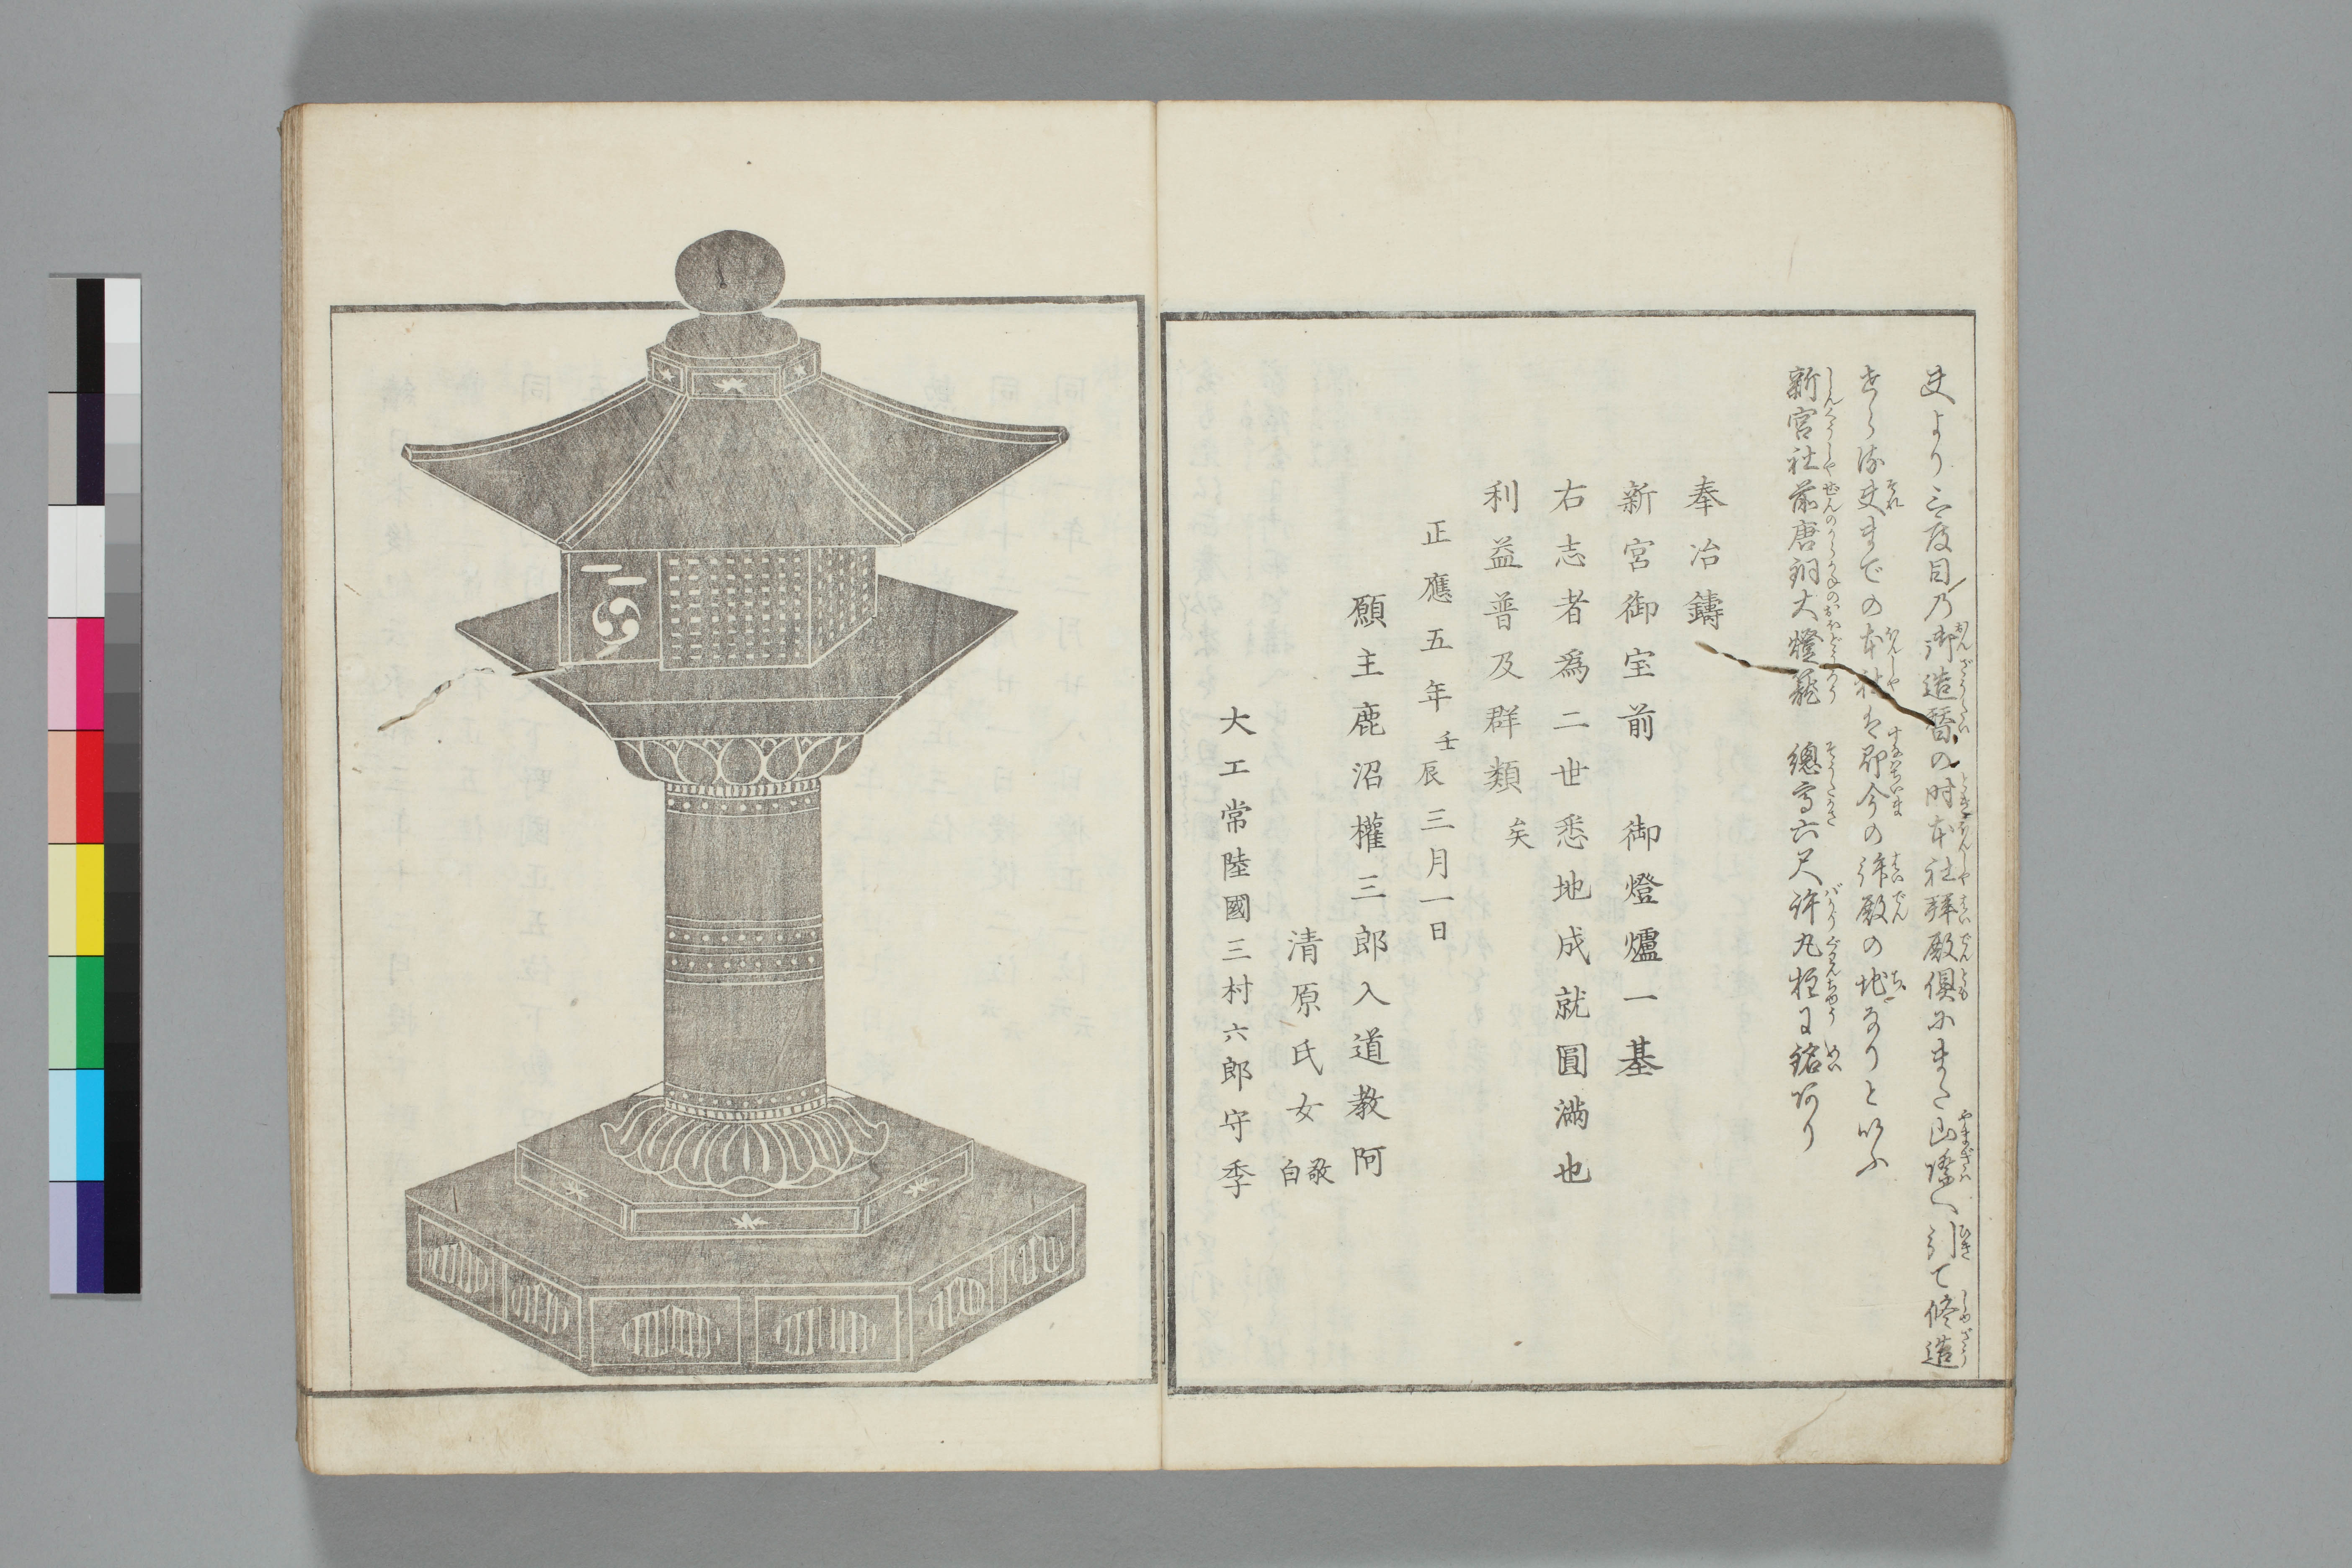 夫より三度目乃御造替の時本社拜殿倶にまた山際へ引て修造
せらる夫までの本社は即今の拜殿の地なりといふ
新宮社前唐銅大燈籠　總高六尺許丸柱に銘あり
奉冶鑄
新宮御宝前　御燈爐一基
右志者爲二世悉地成就圓滿也
利益普及群類矣
正應五年壬辰三月一日
願主鹿沼權三郎入道教阿
清原氏女敬白
大工常陸國三村六郎守季